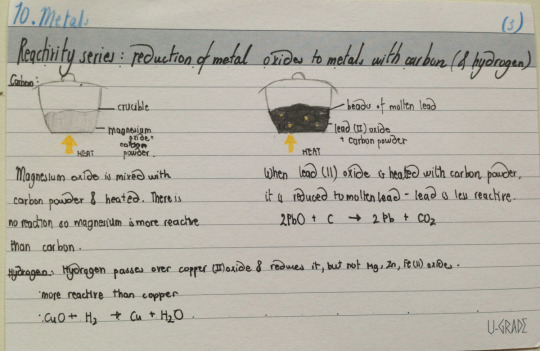 10. Metals
(3)
Reactivity series: reduction of metal oxides to metals with carbon (& hydrogen)
Carbon:
crucible
magnesium
oxide +
carbon
powder.
HEAT
beads of molten lead
lead (II) oxide
+ carbon powder
HEAT
Magnesium oxide is mixed with
carbon powder & heated. There is
no reaction so magnesium is more reactive
than carbon.
When lead (II) oxide is heated with carbon powder,
it is reduced to molten lead - lead is less reactive.
2PbO + C → 2Pb + CO2
Hydrogen: Hydrogen passes over copper (II) oxide & reduces it, but not Mg, Zn, Fe(II) oxides.
∴ more reactive than copper
∴ CuO + H2 → Cu + H2O
U-GRADE